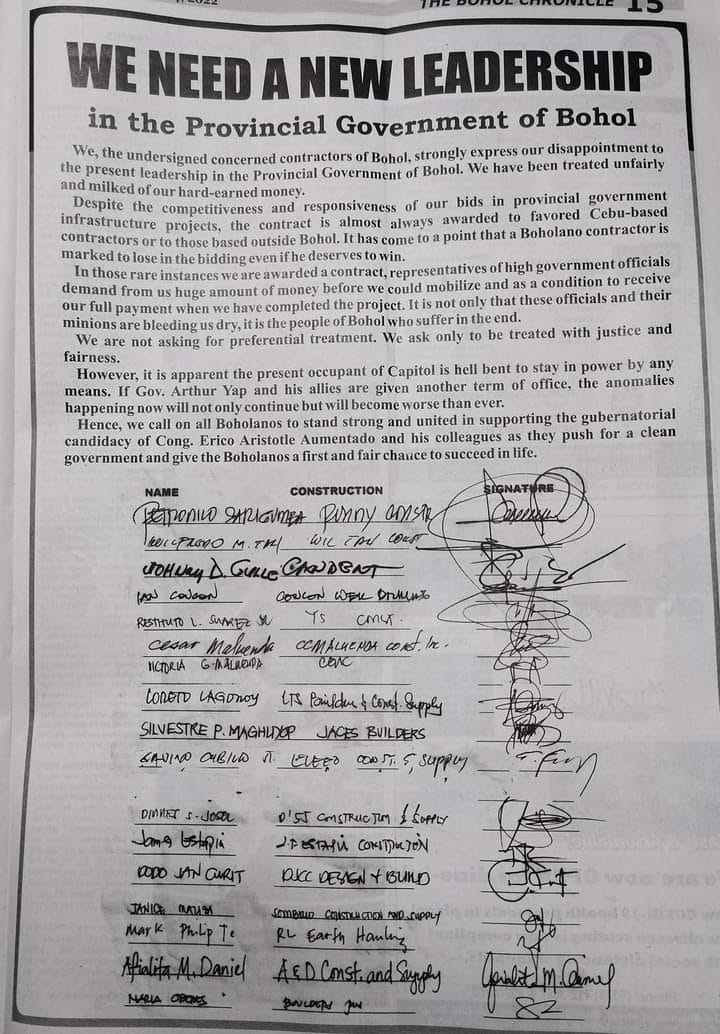 2022
THE BOHOL CHRONICLE 15
WE NEED A NEW LEADERSHIP
in the Provincial Government of Bohol
We, the undersigned concerned contractors of Bohol, strongly express our disappointment to
the present leadership in the Provincial Government of Bohol. We have been treated unfairly
and milked of our hard-earned money.
Despite the competitiveness and responsiveness of our bids in provincial government
infrastructure projects, the contract is almost always awarded to favored Cebu-based
contractors or to those based outside Bohol. It has come to a point that a Boholano contractor is
marked to lose in the bidding even if he deserves to win.
In those rare instances we are awarded a contract, representatives of high government officials
demand from us huge amount of money before we could mobilize and as a condition to receive
our full payment when we have completed the project. It is not only that these officials and their
minions are bleeding us dry, it is the people of Bohol who suffer in the end.
We are not asking for preferential treatment. We ask only to be treated with justice and
fairness.
However, it is apparent the present occupant of Capitol is hell bent to stay in power by any
means. If Gov. Arthur Yap and his allies are given another term of office, the anomalies
happening now will not only continue but will become worse than ever.
Hence, we call on all Boholanos to stand strong and united in supporting the gubernatorial
candidacy of Cong. Erico Aristotle Aumentado and his colleagues as they push for a clean
government and give the Boholanos a first and fair chance to succeed in life.
NAME CONSTRUCTION SIGNATURE
WILFREDO M. TAN WIL TAN CONST
JOHNNY D.
IAN CONCON CONCON WELL DRILLING
RESTITUTO L. SUAREZ JR YS
Cesar Maluenda CCMALUENDA CONST. Inc.
VICTORIA G. MALUENDA
LORETO LAGONOY LTS Builder & Const. Supply
SILVESTRE P. JACES BUILDERS
CONST. & SUPPLY
S. D'SJ CONSTRUCTION & SUPPLY
CONSTRUCTION
DODO JAN CURIT DJCC DESIGN + BUILD
JANICE CONSTRUCTION AND SUPPLY
Mark Philip Te RL Earth Hauling
M. Daniel A & D Const. and Supply
MARIA BUILDERS